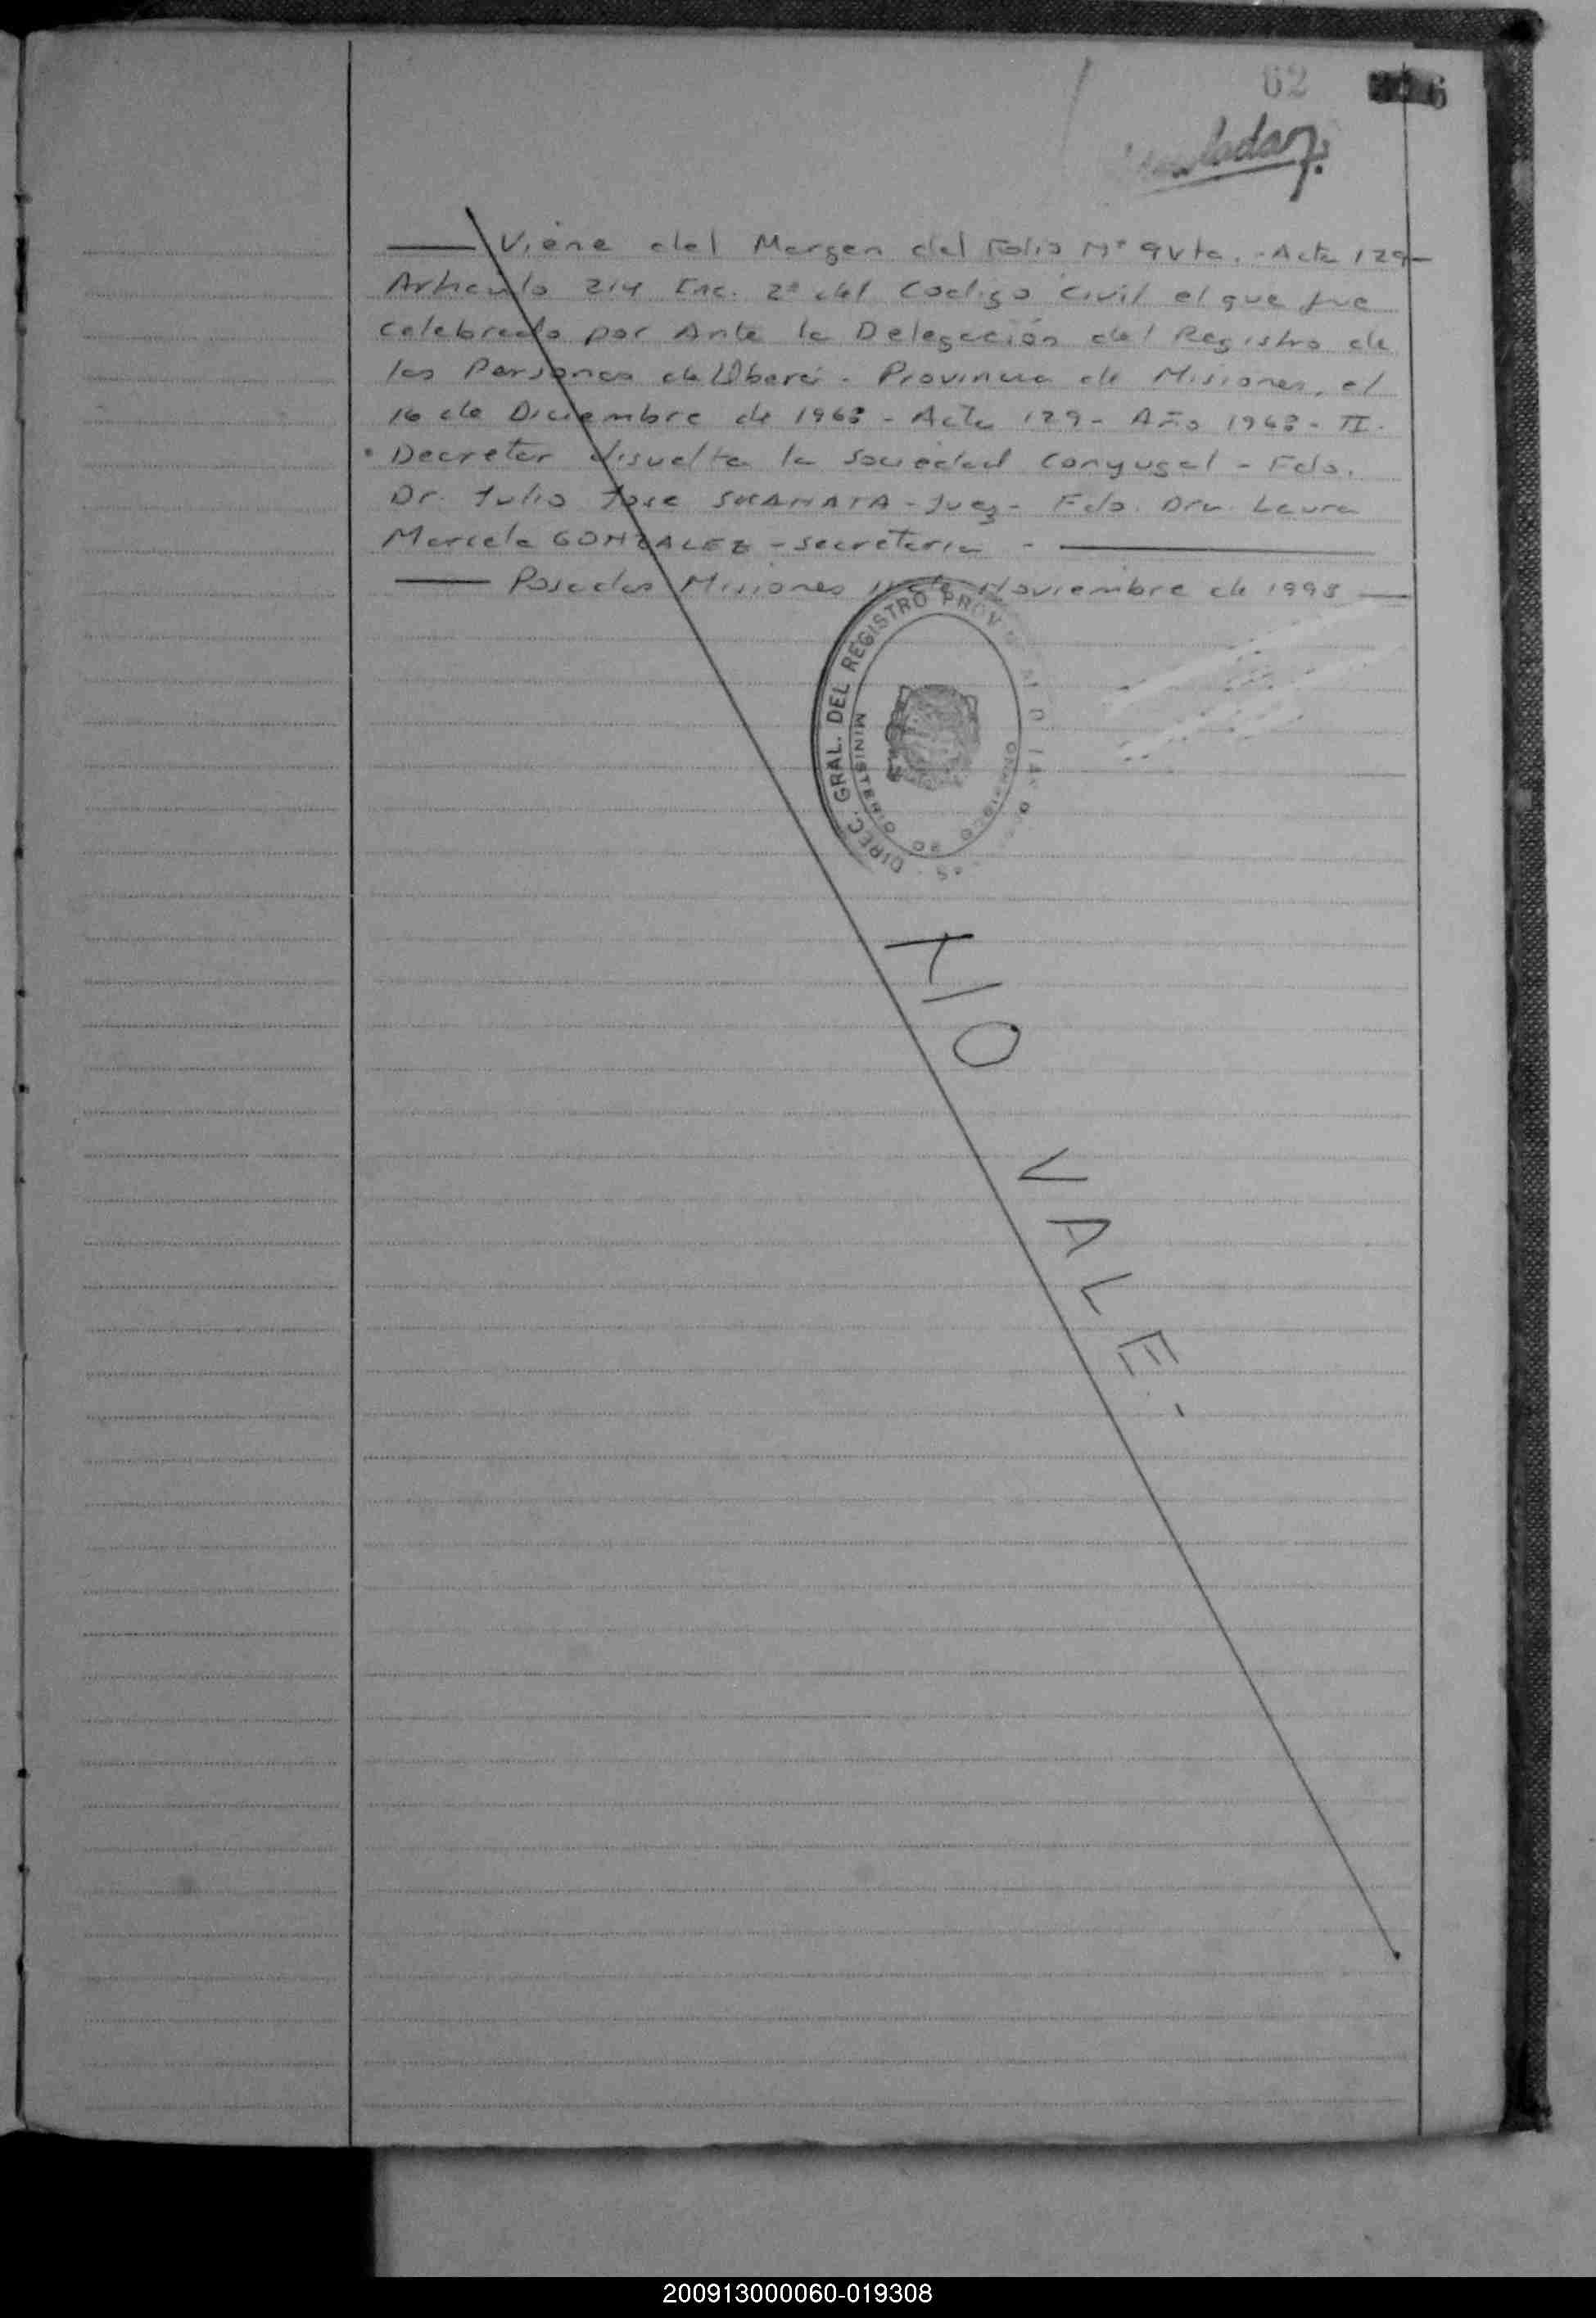 62
6
Viene del Margen del Folio Nº 9 vta. - Acta 129 -
Articulo 214 Inc. 2º del Codigo Civil el que fue
celebrado por Ante la Delegación del Registro de
las Personas de Oberá - Provincia de Misiones, el
16 de Diciembre de 1963 - Acta 129 - Año 1963 - II.
Decretar disuelta la Sociedad Conyugal - Fdo.
Dr. Julio Jose - Juez - Fdo. Dra. Laura
Marcela GONZALEZ - Secretaria -
Posadas Misiones de Noviembre de 1998
DIREC. GRAL. DEL REGISTRO PROV
MINISTERIO DE GOBIERNO
NO VALE.-
200913000060-019308